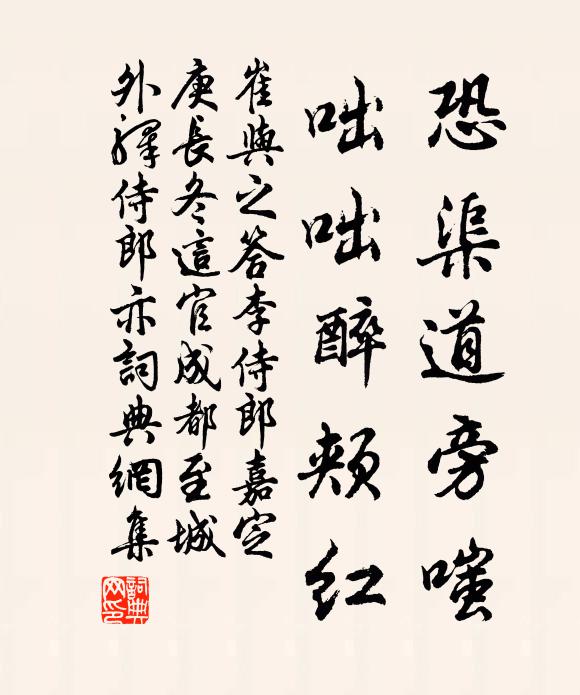 恐渠道旁嗤
咄咄醉颊红
崔與之答李侍郎嘉定
庚長冬這官成都至城
外驛侍郎亦詞典網集
詞典网印